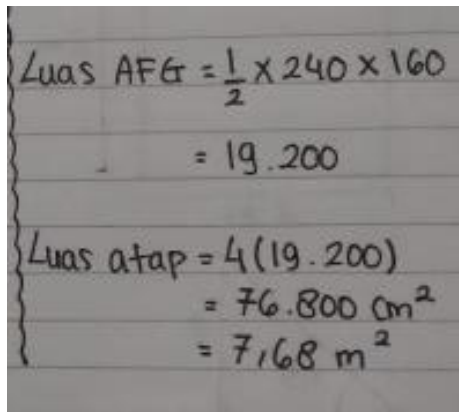 Luas AFG = 1/2 × 240 × 160
= 19.200
Luas atap = 4(19.200)
= 76.800 cm²
= 7,68 m²